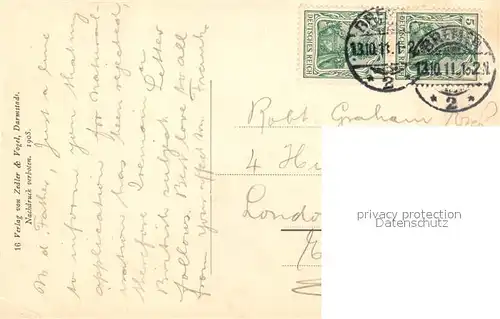 M d Father, Just a line
to inform you that my
application for Natural-
ization has been rejected,
therefore I remain
British subject. Letter
follows. Best love to all
from your affect son Frank.
16 Verlag von Zedler & Vogel, Darmstadt.
Nachdruck verboten. 1905.
DEUTSCHES REICH
DEUTSCHES REICH
5
DRESDEN
13.10.11.1-2
2
13.10.11.1-2.N.
* 2 *
Robt Graham
4
London
privacy protection
Datenschutz